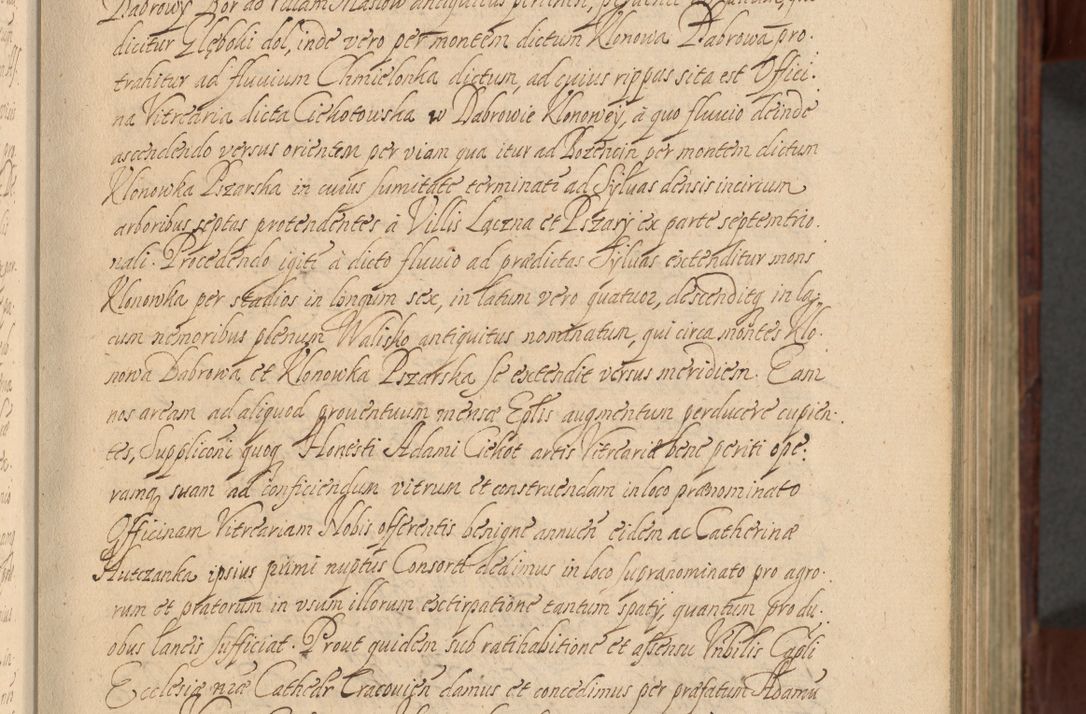 Dabrowy Bor ad villam Masłow antiquitus
dicitur Głęboki dol, inde vero per montem dictum Klonowa Dabrowa pro.
trahitur ad fluuium Chmielonka dictum, ad cuius rippas sita est Offici.
na Vitrearia dicta Cichotowska w Dabrowie Klonowey, à quo fluuio deinde
ascendendo versus orientem per viam qua itur ad Bozencin per montem dictum
Klonowka Pszarska in cuius sumitate terminatè ad Syluas densis incirium
arboribus septas protendentes à Villis Łączna et Pszary ex parte septemtrio.
nali. Procedendo igitè à dicto fluuio ad prædictas Syluas extenditur mons
Klonowka per stadios in longum sex, in latum vero quatuor, descenditq in la,,
cum nemoribus plenum Walisko antiquitus nominatum, qui circa montes Klo.
nowa Dabrowa et Klonowka Pszarska se extendit versus meridiem. Eam
nos aream ad aliquod prouentuum mensæ Eplis augmentum perducere cupien.
tes, Suppliconi quoq Honesti Adami Cichot artis Vitreariæ bene periti ope.
ramq suam ad conficiendum vitrum et construendam in loco prænominato
Officinam Vitreariam Nobis offerentis benigne annuen eidem ac Catherinæ
Hutczanka ipsius primi nuptus Consorti dedimus in loco supranominato pro agro.
rum et pratorum in vsum illorum exctirpatione tantum spatÿ, quantum pro du.
obus laneis sufficiat. Prout quidem sub ratihabitione et assensu Vnbilis Capli
Ecclesiæ nræ Cathedr Cracouien damus et concedimus per præfatum Adamū